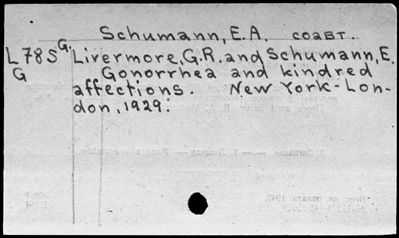 Schumann, E.A. соавт.
L78S G. Livermore, G.R. and Schumann, E.
G Gonorrhea and kindred
affections. New York-Lon-
don, 1929.